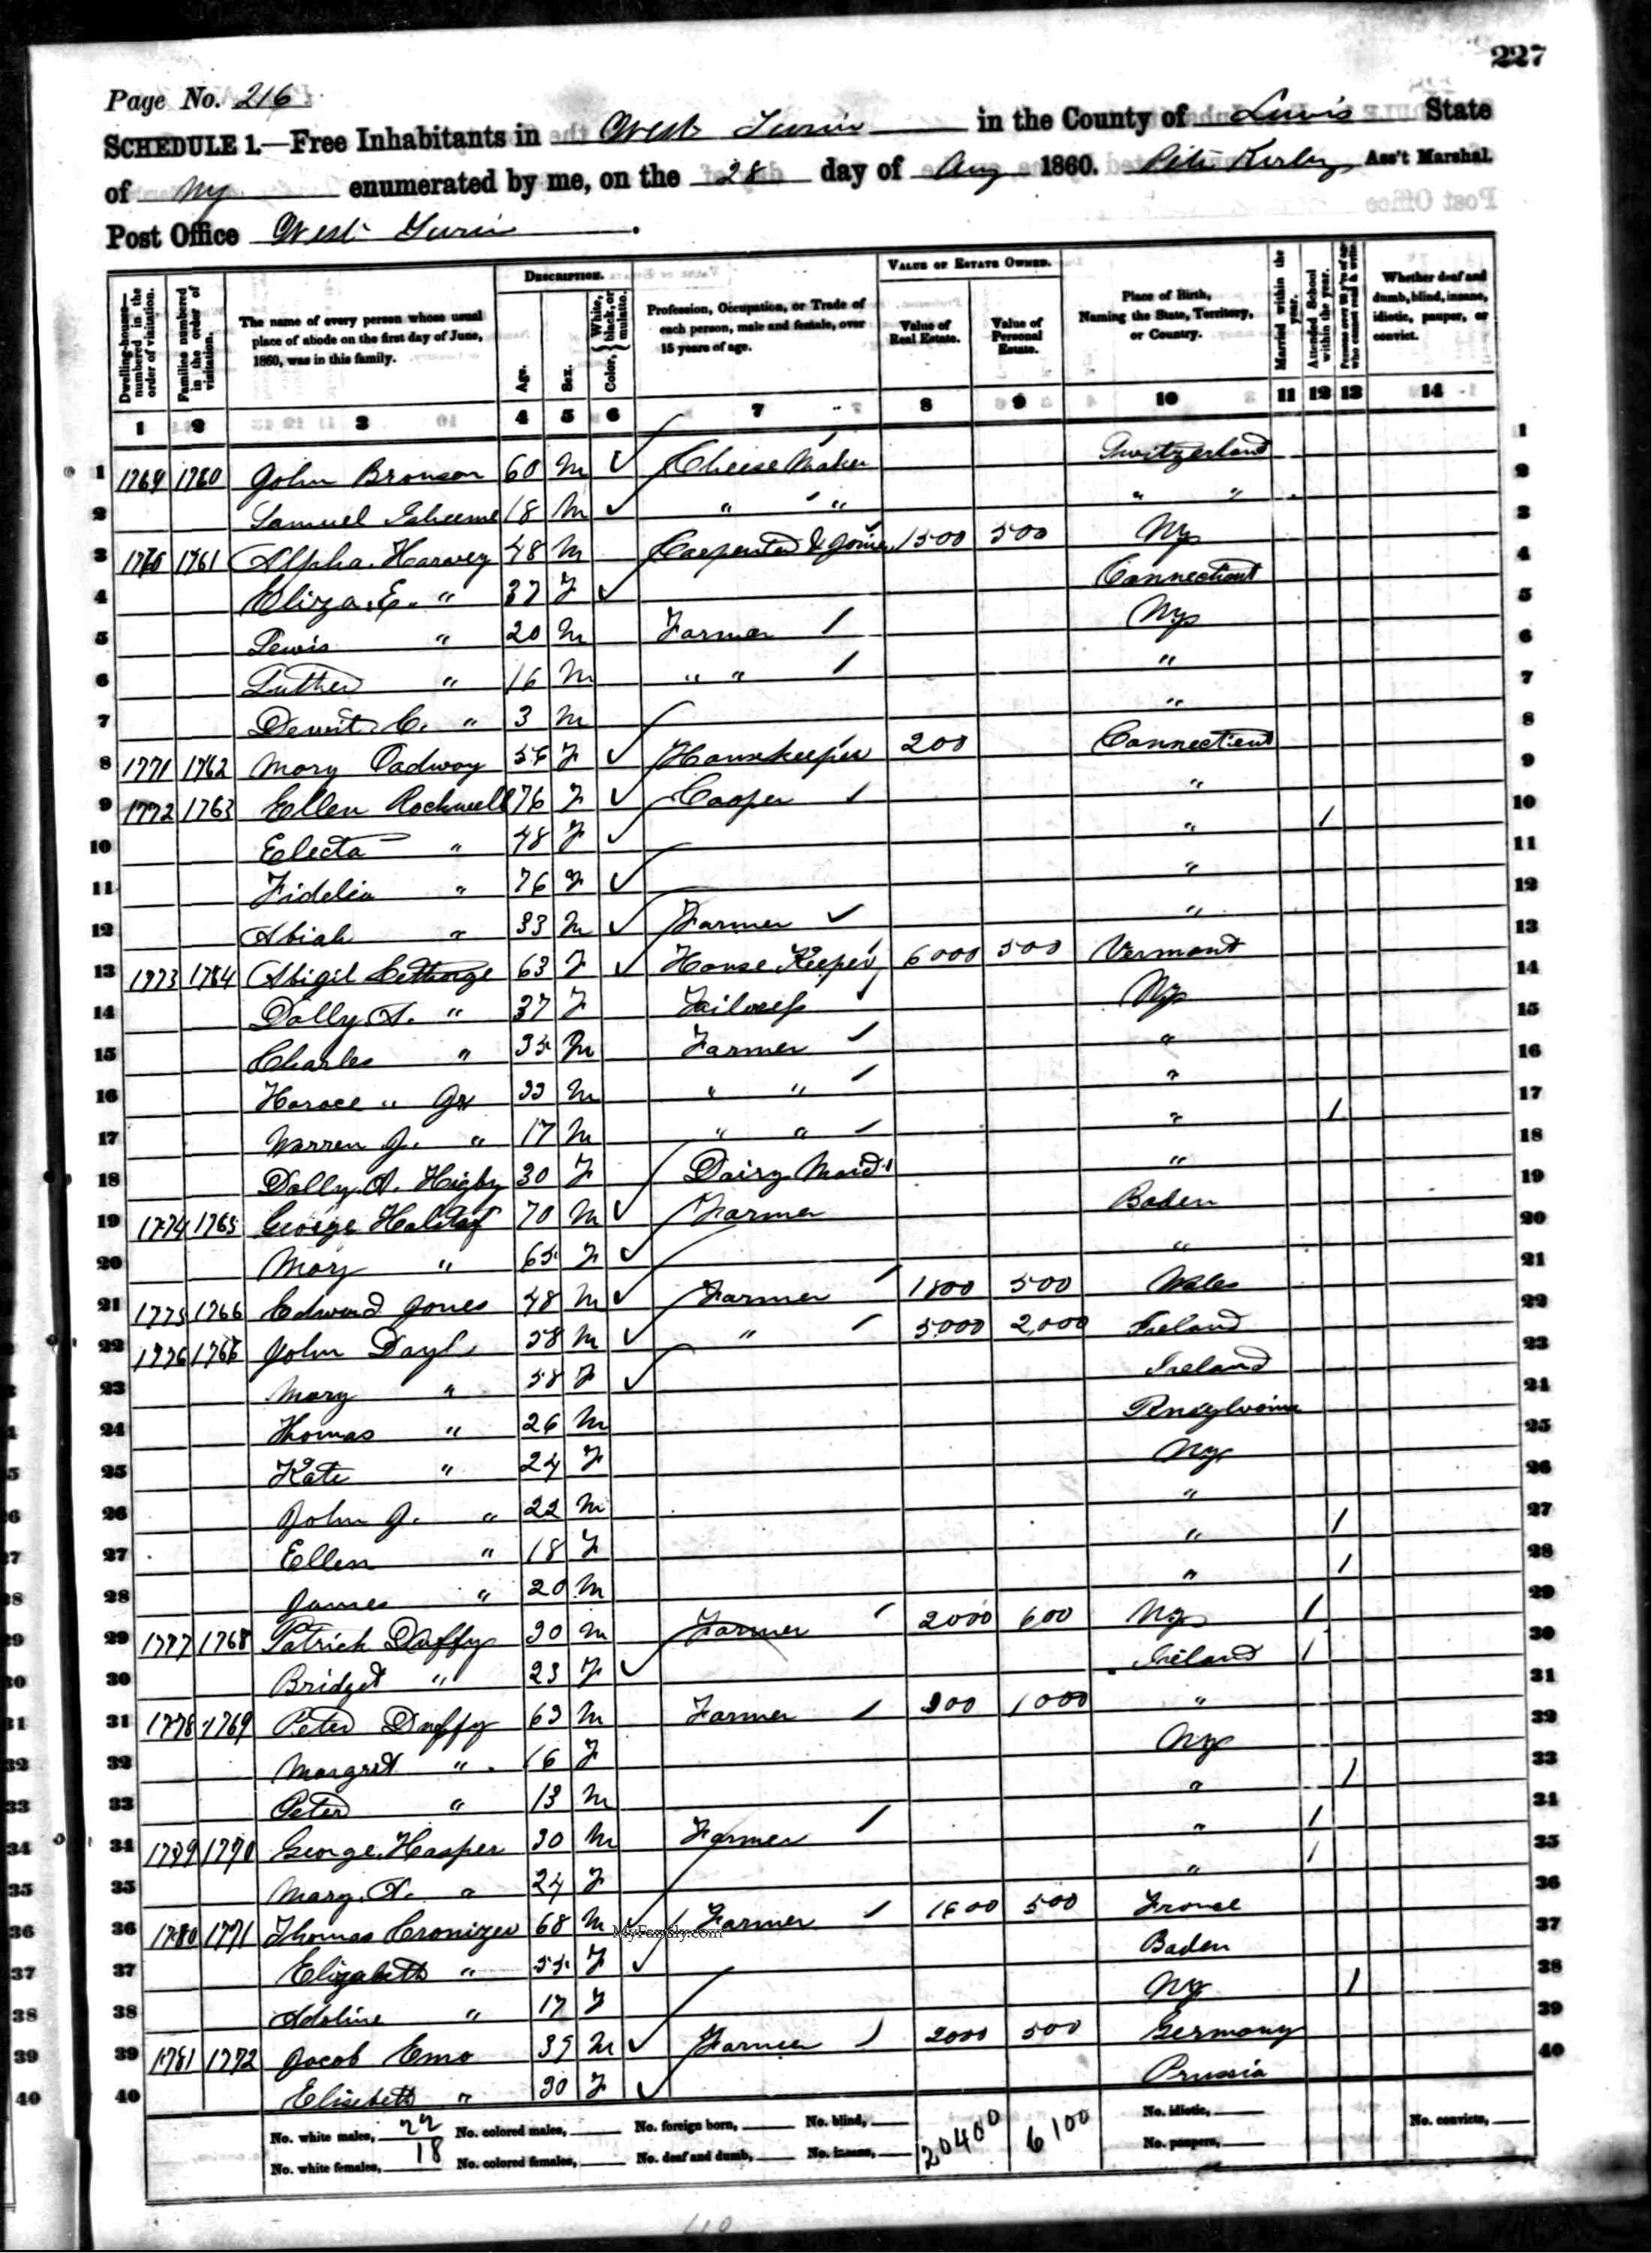 227
Page No. 216
SCHEDULE 1.—Free Inhabitants in West Turin in the County of Lewis State
of Ny enumerated by me, on the 28 day of Aug 1860. Peter Kirley Ass't Marshal.
Post Office West Turin.
Dwelling-house—numbered in the order of visitation.
Families numbered in the order of visitation.
The name of every person whose usual place of abode on the first day of June, 1860, was in this family.
DESCRIPTION.
Age.
Sex.
Color, { White, black, or mulatto.
Profession, Occupation, or Trade of each person, male and female, over 15 years of age.
VALUE OF ESTATE OWNED.
Value of Real Estate.
Value of Personal Estate.
Place of Birth, Naming the State, Territory, or Country.
Married within the year.
Attended School within the year.
Persons over 20 y'rs of age who cannot read & write.
Whether deaf and dumb, blind, insane, idiotic, pauper, or convict.
1 2 3 4 5 6 7 8 9 10 11 12 13 14
1 1769 1760 John Bronson 60 M Cheese Maker Switzerland 1
2 Samuel 18 M " " " " 2
3 1770 1761 Alpha Harvey 48 M Carpenter & Joiner 1500 500 Ny 3
4 Eliza E. " 37 F Connecticut 4
5 Lewis " 20 M Farmer / Ny 5
6 Luther " 16 M " " / " 6
7 Dewit C. " 3 M " 7
8 1771 1762 Mary Cadway 56 F Housekeeper 200 Connecticut 8
9 1772 1763 Ellen Rockwell 76 F Cooper " 9
10 Electa " 48 F " / 10
11 Fidelia " 76 F " 11
12 Abiah " 33 M Farmer " 12
13 1773 1764 Abigil 63 F House Keeper 6000 500 Vermont 13
14 Dolly A. " 37 F Tailoress Ny 14
15 Charles " 35 M Farmer " 15
16 Horace " Jr 33 M " " / " 16
17 Warren J. " 17 M " " / " / 17
18 Dolly A. Higby 30 F Dairy Maid " 18
19 1774 1765 George Halstaf 70 M Farmer Baden 19
20 Mary " 65 F " 20
21 1775 1766 Edward Jones 48 M Farmer 1800 500 Wales 21
22 1776 1766 John Dayl 58 M " / 5000 2,000 Ireland 22
23 Mary " 58 F Ireland 23
24 Thomas " 26 M Pensylvania 24
25 Kate " 24 F Ny 25
26 John J. " 22 M " 26
27 Ellen " 18 F " / 27
28 James " 20 M " / 28
29 1777 1768 Patrick Duffy 30 M Farmer / 2000 600 Ny / 29
30 Bridget " 23 F Ireland / 30
31 1778 1769 Peter Duffy 63 M Farmer / 300 1000 " 31
32 Margret " 16 F Ny 32
33 Peter " 13 M " / 33
34 1779 1770 George Hasper 30 M Farmer / " / 34
35 Mary A. " 24 F " / 35
36 1780 1771 Thomas Cronizer 68 M Farmer / 1600 500 France 36
37 Elizabeth " 55 F Baden 37
38 Adoline " 17 F Ny / 38
39 1781 1772 Jacob Emo 39 M Farmer / 2000 500 Germany 39
40 Elisebeth " 30 F Prussia 40
MyFamily.com
No. white males, 22 No. colored males, No. foreign born, No. blind, 20400 6100 No. idiotic, No. convicts,
No. white females, 18 No. colored females, No. deaf and dumb, No. insane, No. paupers,